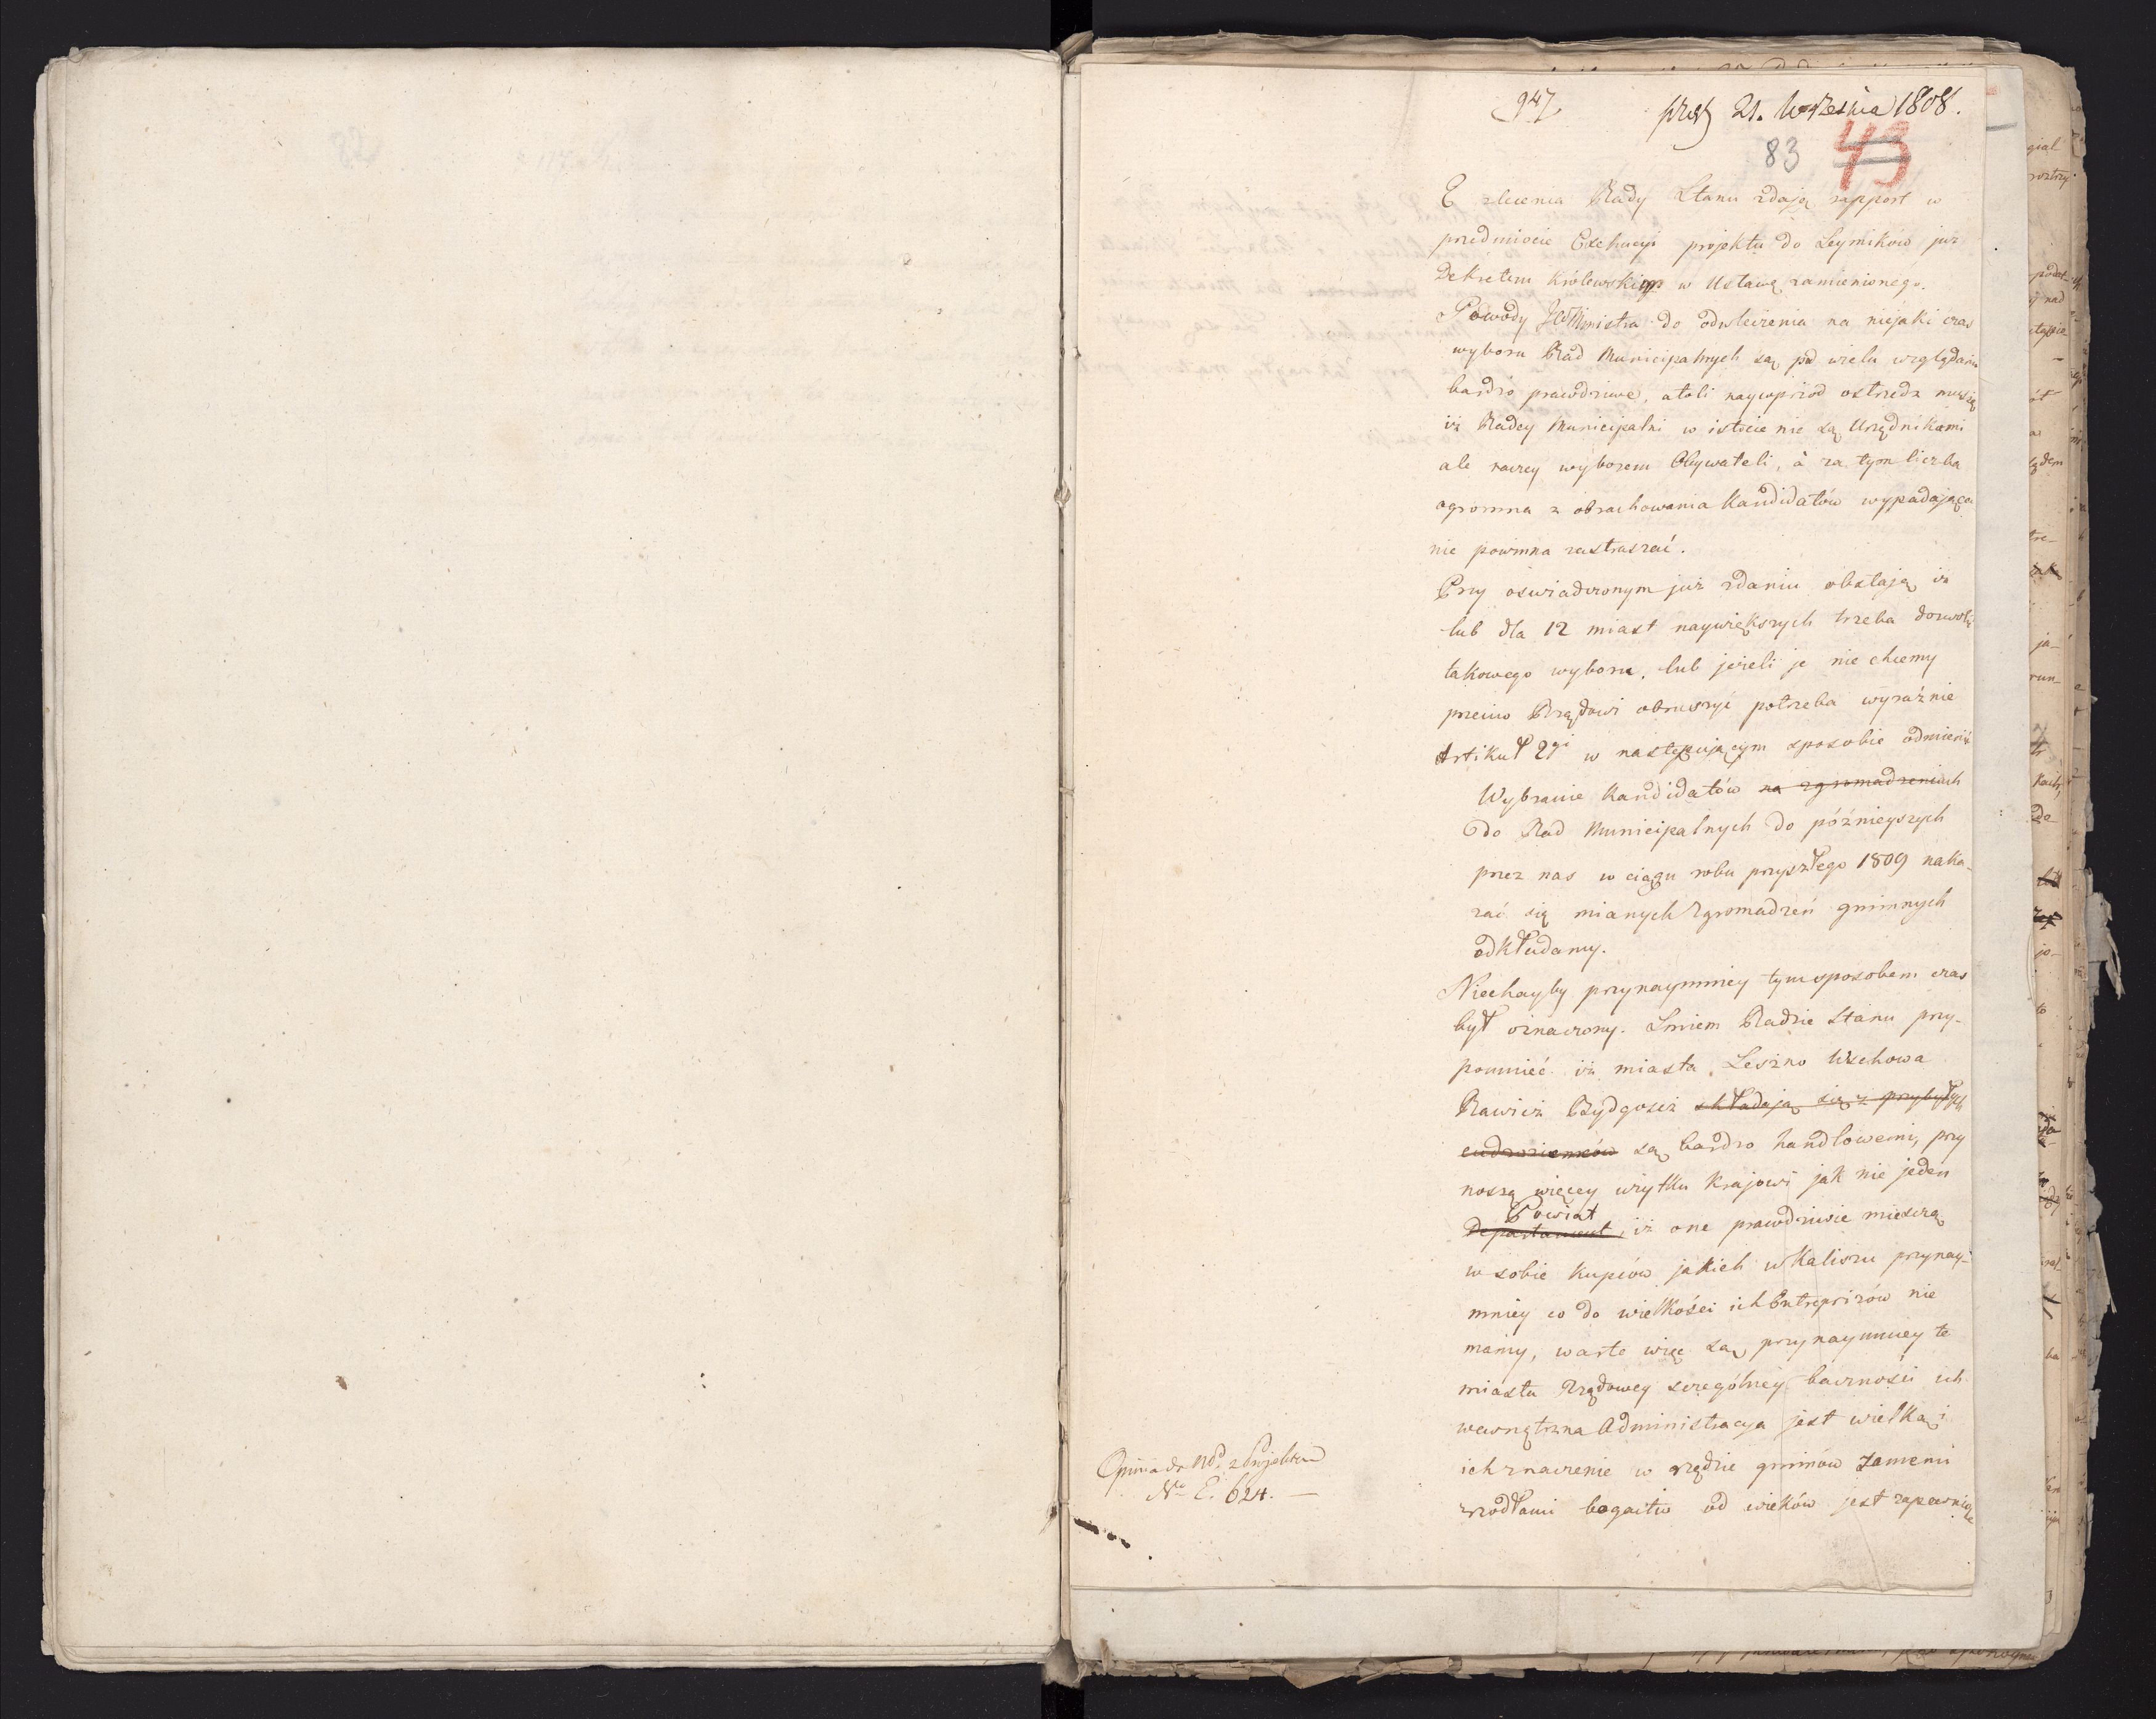 947.
21. Września 1808.
83 43
Z zlecenia Rady Stanu zdaję rapport w
przedmiocie Exekucyi projektu do Seymików już
Dekretem Królewskim w Ustawę zamienionego.
Powody JWMinistra do odwleczenia na niejaki czas
wyboru Rad Municipalnych są pod wielu względami
bardzo prawdziwe, atoli naywprzód ostrzedz muszę
iż Radcy Municipalni w istocie nie są Urzędnikami
ale raczey wyborem Obywateli, à za tym liczba
ogromna z obrachowania Kandidatów wypadająca
nie powinna zastraszać.
Przy oświadczonym już zdaniu obstaję iż
lub dla 12 miast naywiększych trzeba dozwolić
takowego wyboru, lub jeżeli je nie chcemy
przeciw Rządowi obruszyć potrzeba wyraźnie
Artikuł 2gi w następującym sposobie odmienić
Wybranie Kandidatów na zgromadzeniach
do Rad Municipalnych do późnieyszych
przez nas w ciągu roku przyszłego 1809 naka-
zać się mianych Zgromadzeń gminnych
odkładamy.
Niechayby przynaymniey tym sposobem czas
był oznaczony. Smiem Radzie Stanu przy-
pomnieć iż miasta Leszno Wschowa
Rawicz Bydgoszcz składają się z przybyłych
cudzoziemców są bardzo handlowemi, przy
noszą więcey użytku Krajowi jak nie jeden
Powiat
Departament, iż one prawdziwie mieszczą
w sobie Kupców jakich w Kaliszu przynay-
mniey co do wielkości ich Entreprizów nie
mamy, warte więc są przynaymniey te
miasta Rządowey szczególney baczności ich
wewnętrzna Administracya jest wielka i
ich znaczenie w rzędzie gminów samemi
zrzodłami bogactw od wieków jest zapewnione
Opinia do z Projektem
No E. 624. —